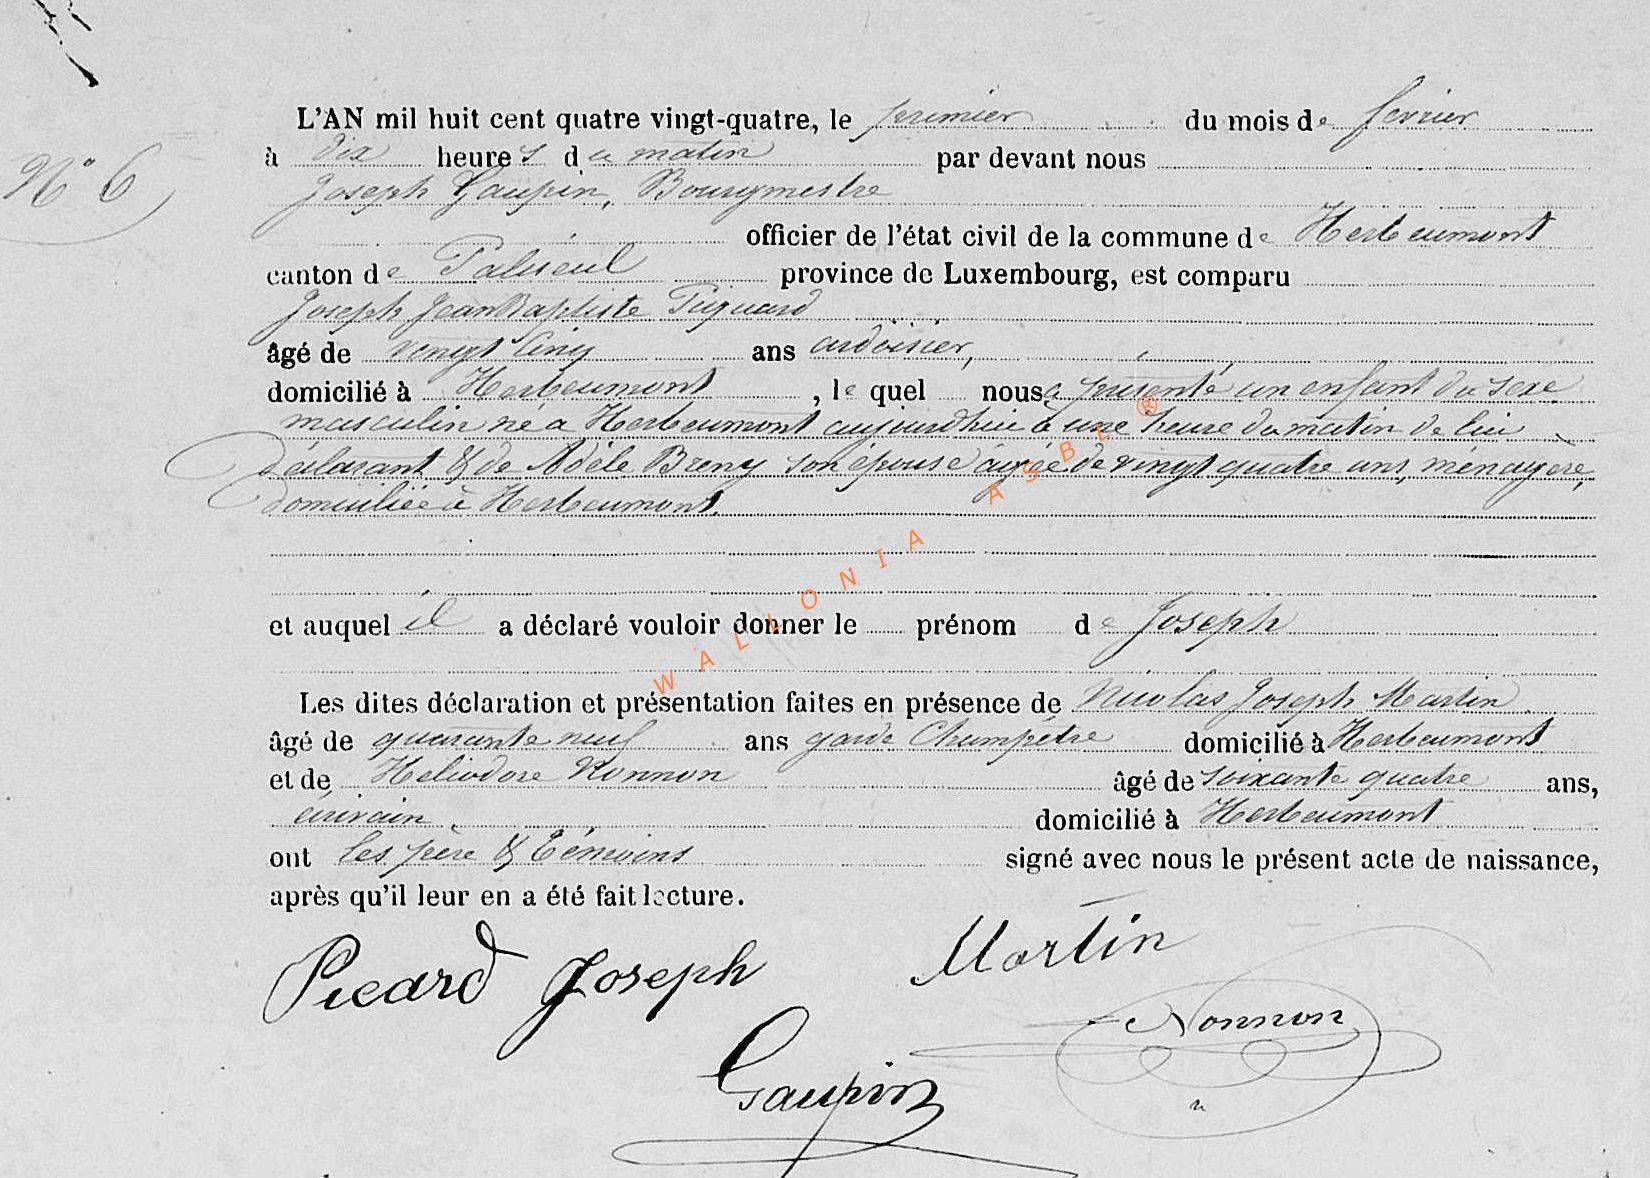 N° 6
L'AN mil huit cent quatre vingt-quatre, le premier du mois de fevrier
à dix heures du matin par devant nous
Joseph Gaupin, Bourgmestre
officier de l'état civil de la commune de Herbeumont
canton de Paliseul province de Luxembourg, est comparu
Joseph Jean Baptiste
âgé de vingt cinq ans ardoisier,
domicilié à Herbeumont, lequel nous a présenté un enfant du sexe
masculin né à Herbeumont aujourdhui à une heure du matin de lui
déclarant & de Adèle Breny son épouse agée de vingt quatre ans, ménagère,
domiciliée à Herbeumont.
et auquel il a déclaré vouloir donner le prénom de Joseph
Les dites déclaration et présentation faites en présence de Nicolas Joseph Martin
âgé de quarante neuf ans garde Champêtre domicilié à Herbeumont
et de Héliodore Nonnon âgé de soixante quatre ans,
écrivain domicilié à Herbeumont
ont les père & témoins signé avec nous le présent acte de naissance,
après qu'il leur en a été fait lecture.
Picard Joseph Martin
Nonnon
Gaupin
WALLONIA ASBL ®